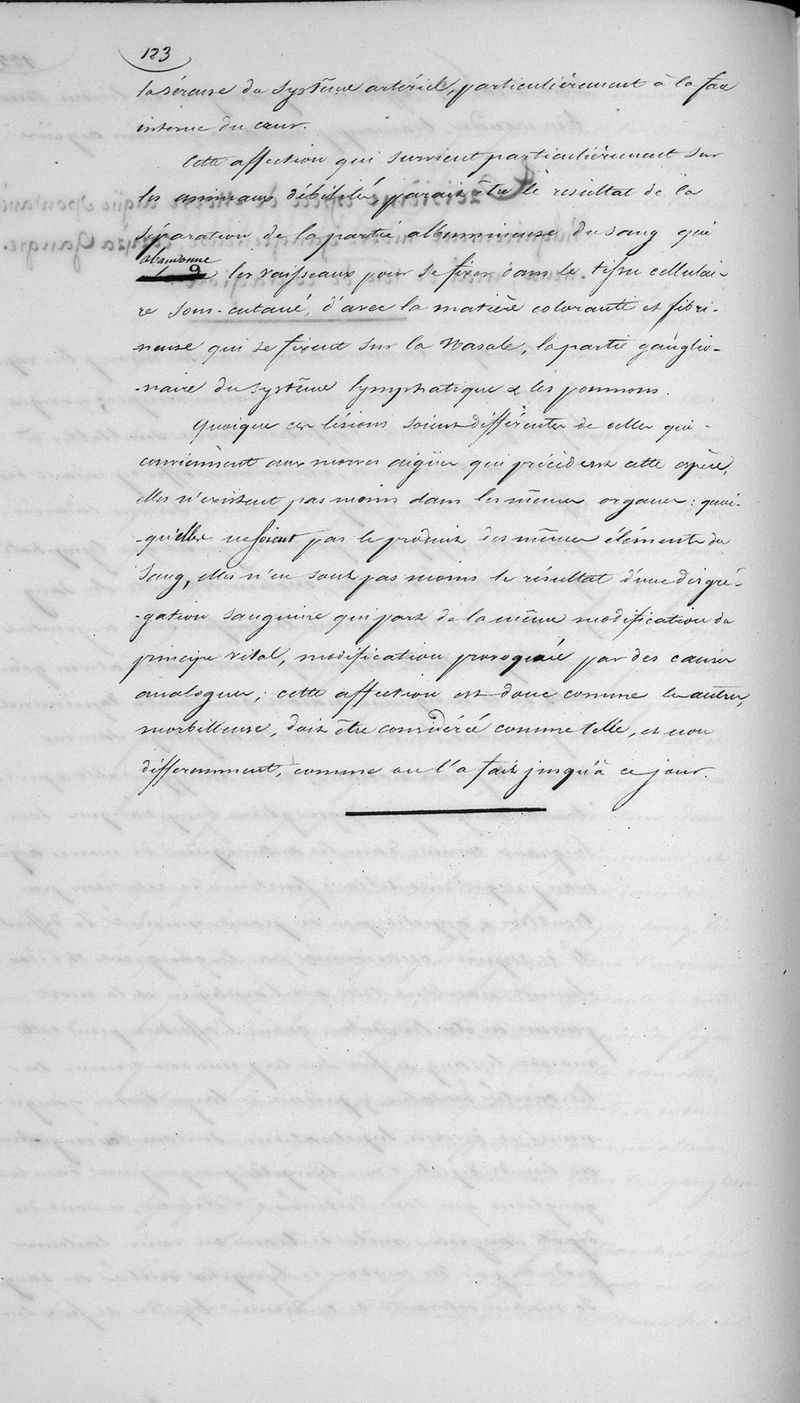 123
la séreuse du système artériel, particulièrement à la face
interne du cœur.
Cette affection qui survient particulièrement sur
les animaux débilités parait être le résultat de la
séparation de la partie albumineuse du sang qui
abandonne
les vaisseaux pour se fixer dans le tissu cellulai-
re sous-cutané, d'avec la matière colorante et fibri-
-neuse qui se fixent sur la nasale, la partie ganglio-
-naire du système lymphatique & les poumons.
Quoique ces lésions soient différentes de celles qui
conviennent aux morves aigües qui précèdent cette espèce,
elles n'existent pas moins dans les mêmes organes : quoi-
-qu'elles ne soient pas le produit des mêmes éléments du
sang, elles n'en sont pas moins le résultat d'une disgré-
-gation sanguine qui part de la même modification du
principe vital, modification provoquée par des causes
analogues ; cette affection est donc comme les autres,
morbilleuse, doit être considérée comme telle, et non
differemment, comme on l'a fait jusqu'à ce jour.